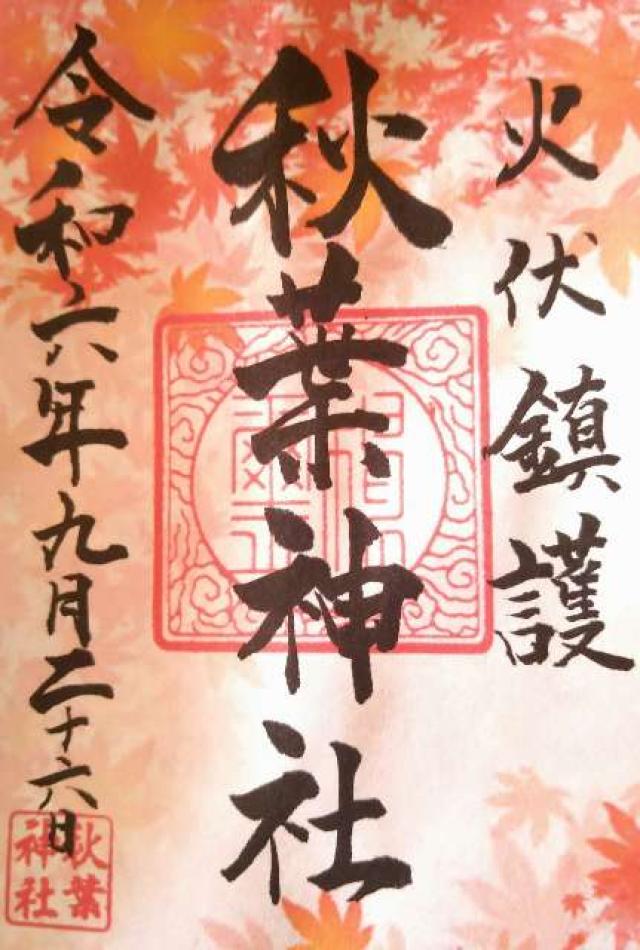 火伏鎮護
秋葉神社
令和六年九月二十六日
秋葉
神社